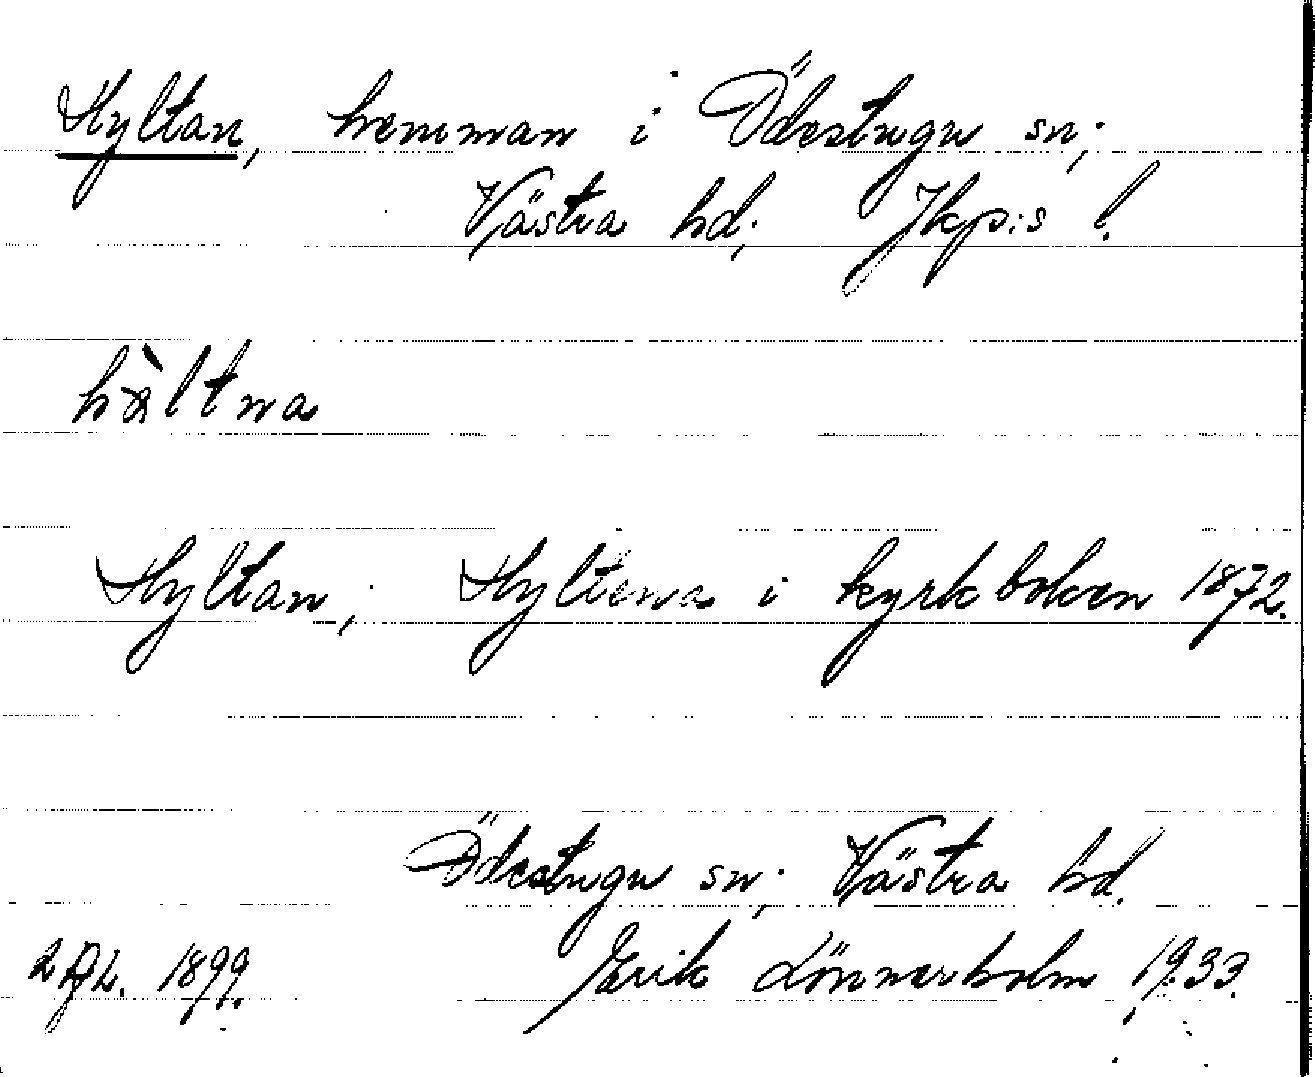 Hyltan, hemman i Ödestugu sn;
Västra hd; Jkp:s l.
hæ̀ltna
Hyltan; Hyltena i kyrkboken 1872.
Ödestugu sn; Västra hd.
1899. Erik Lönnerholm 1933.